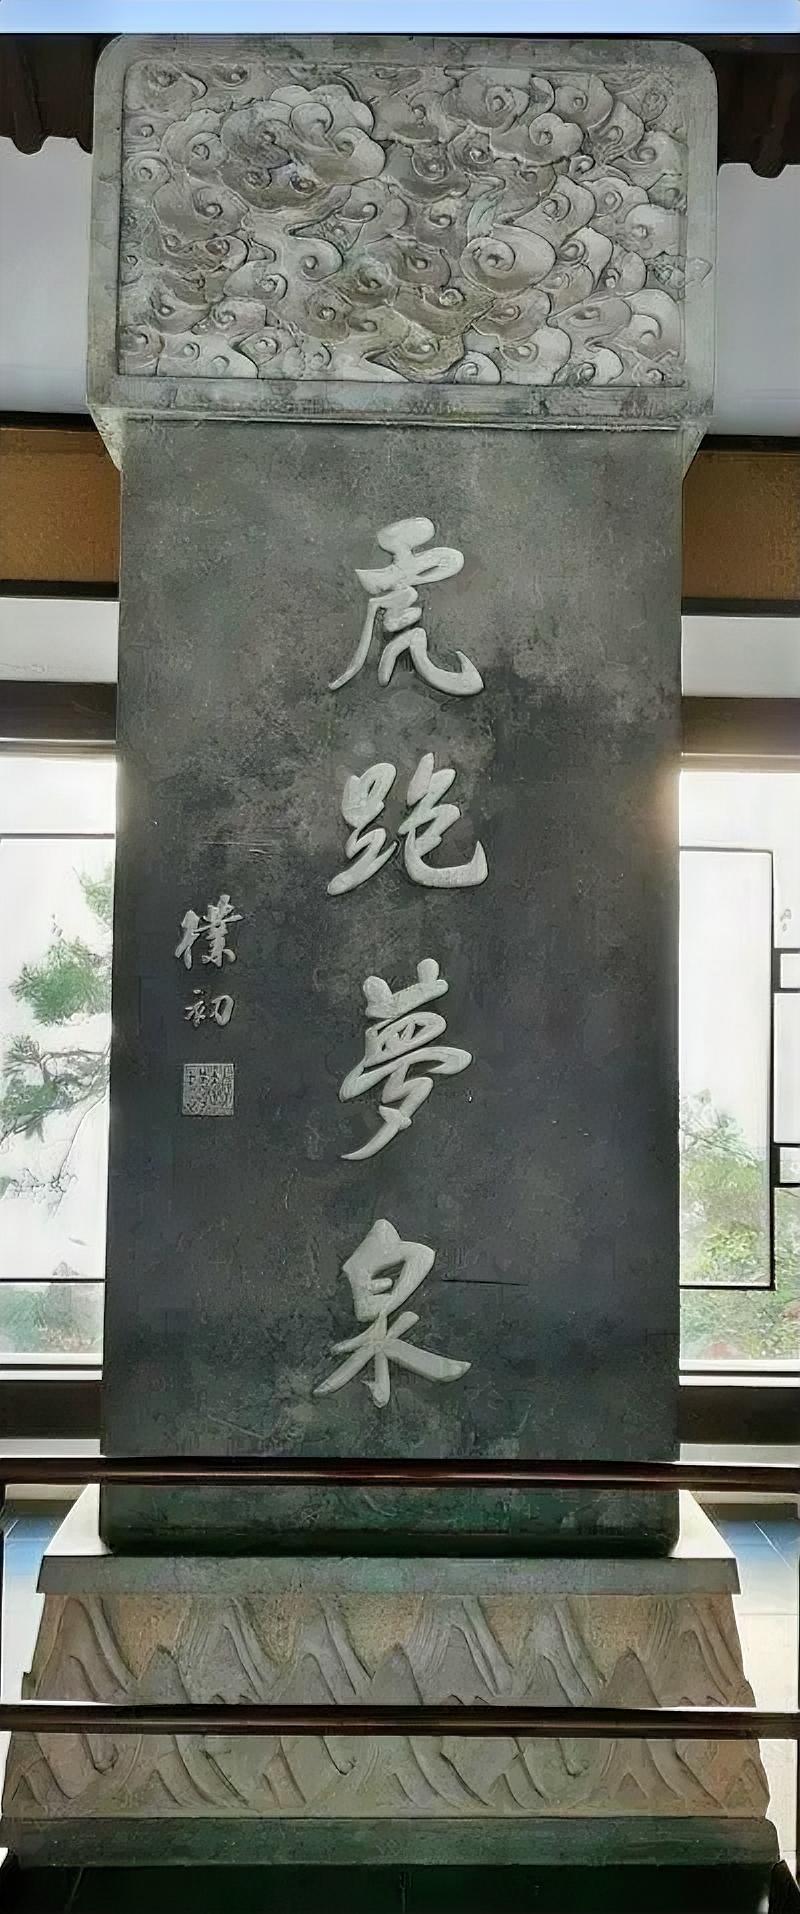 虎跑夢泉
樸初